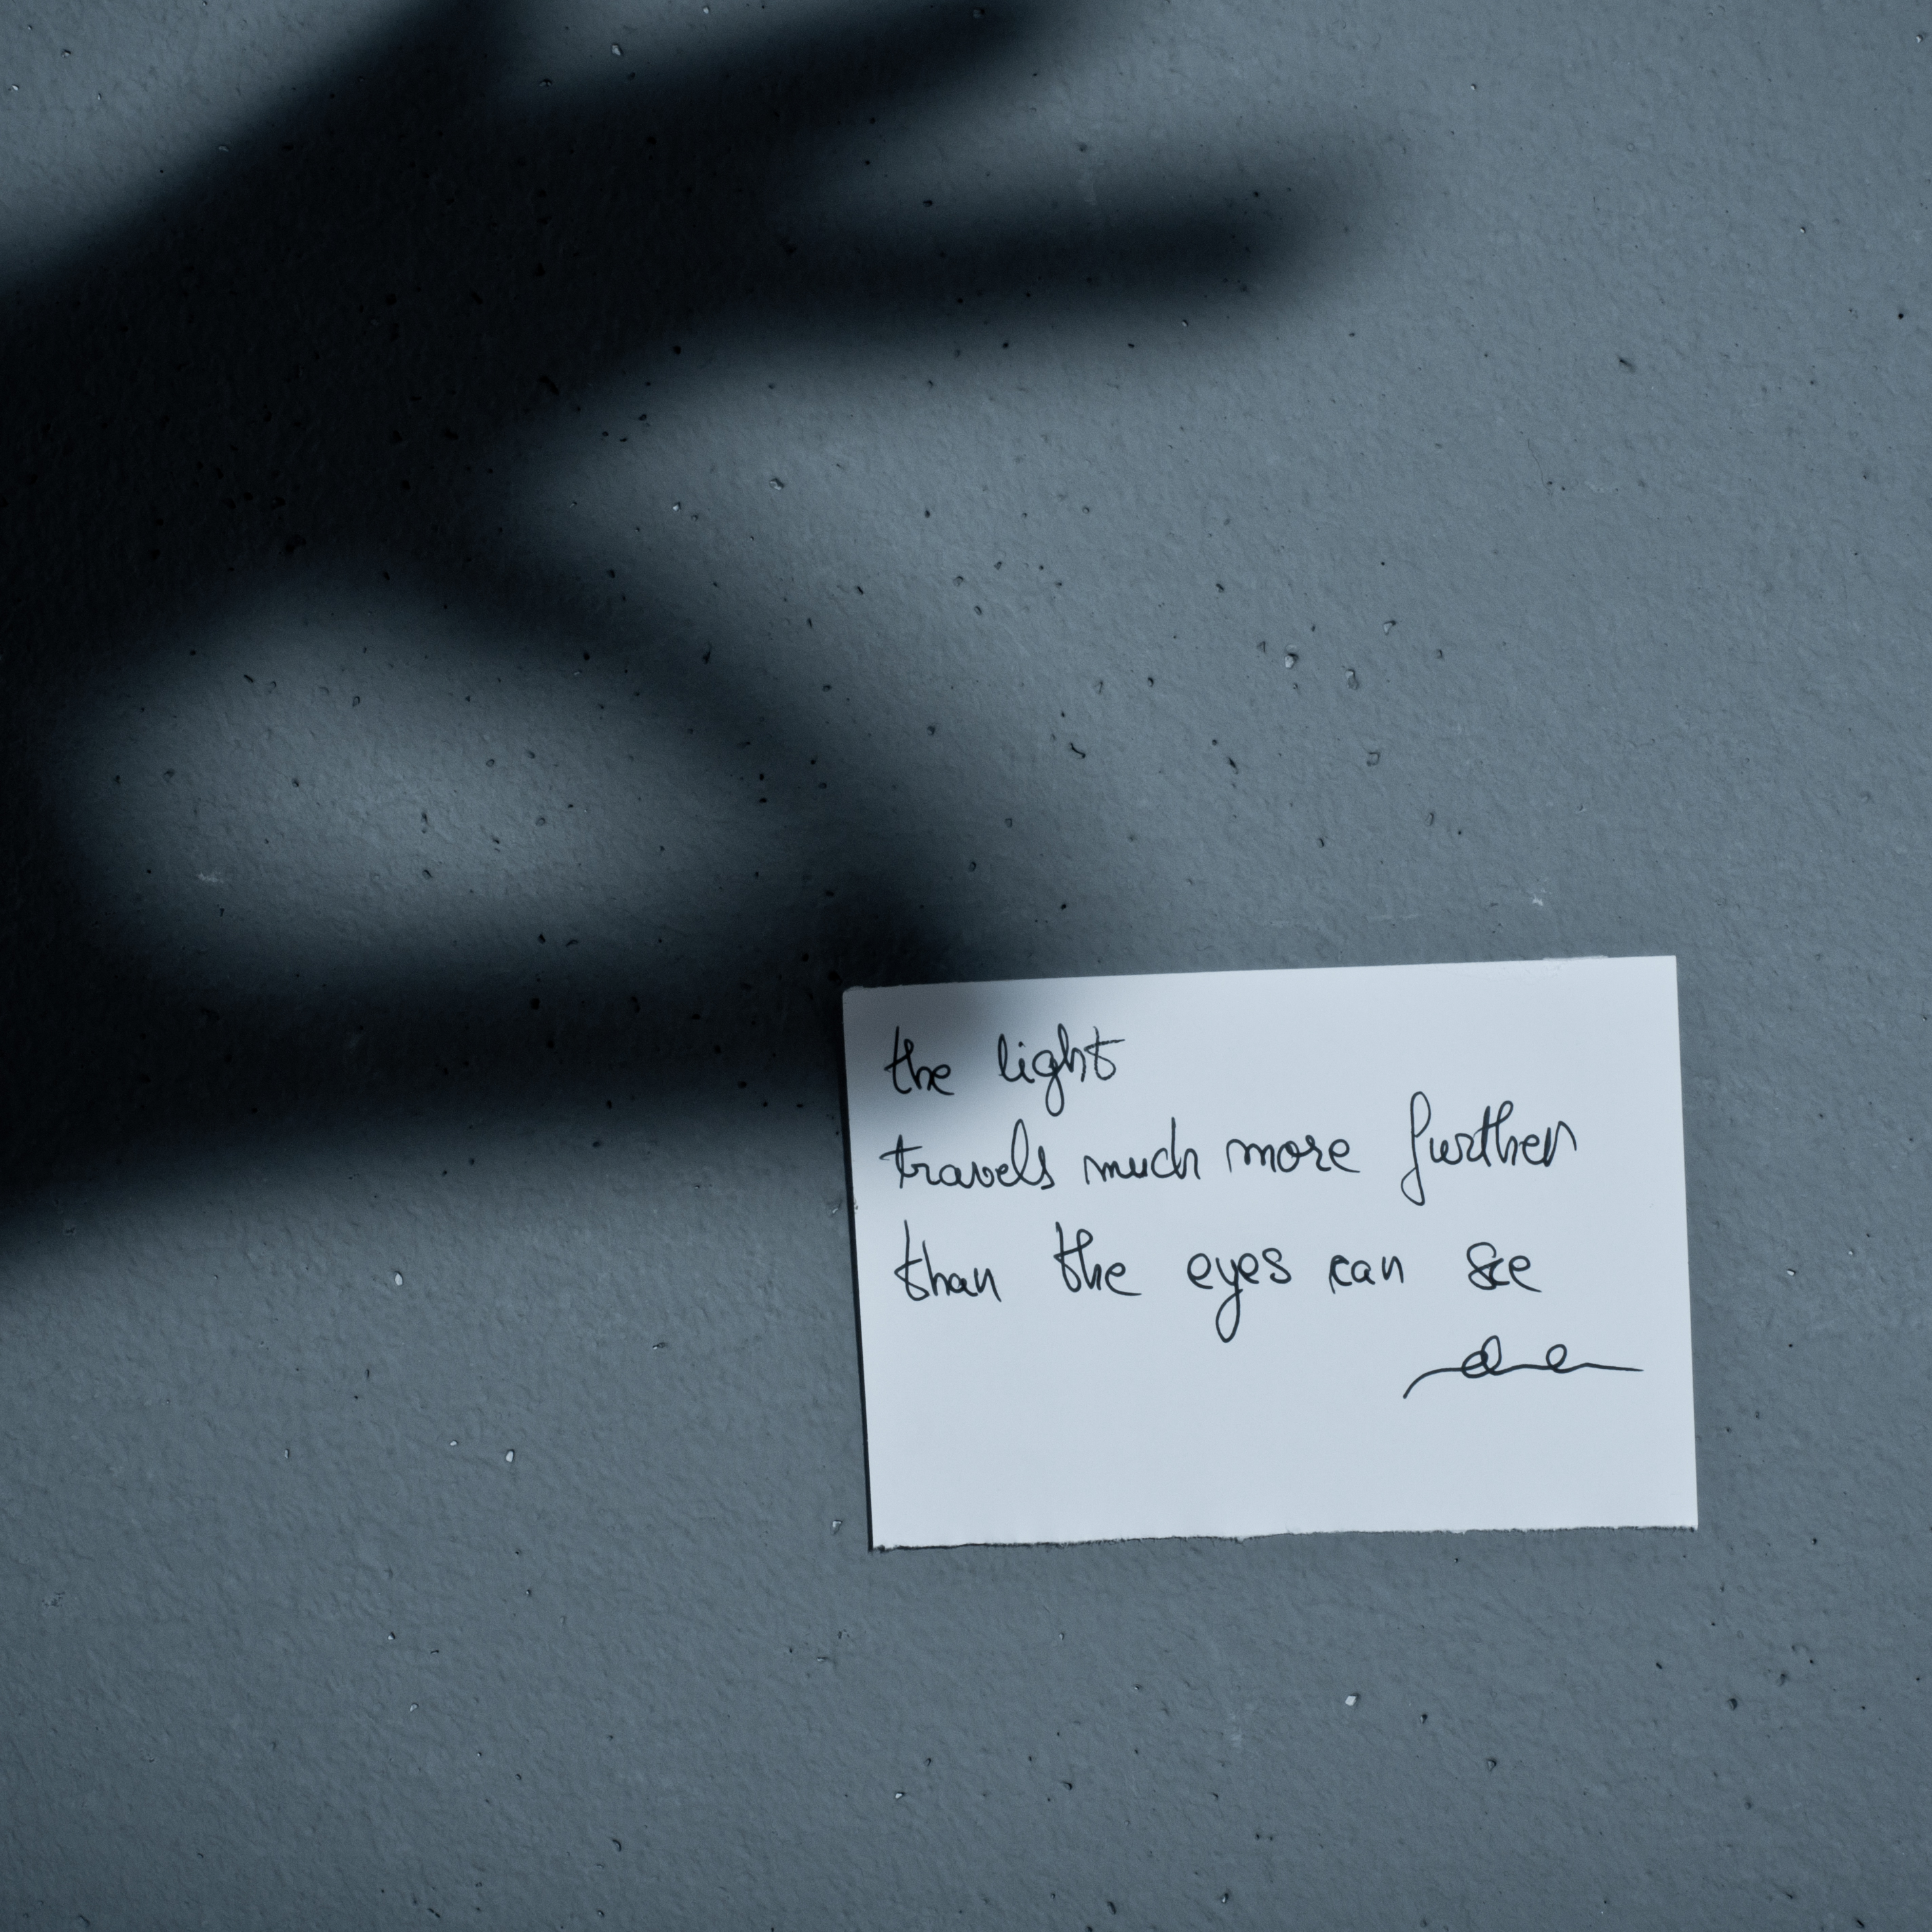 the light
travels much more further
than the eyes can see